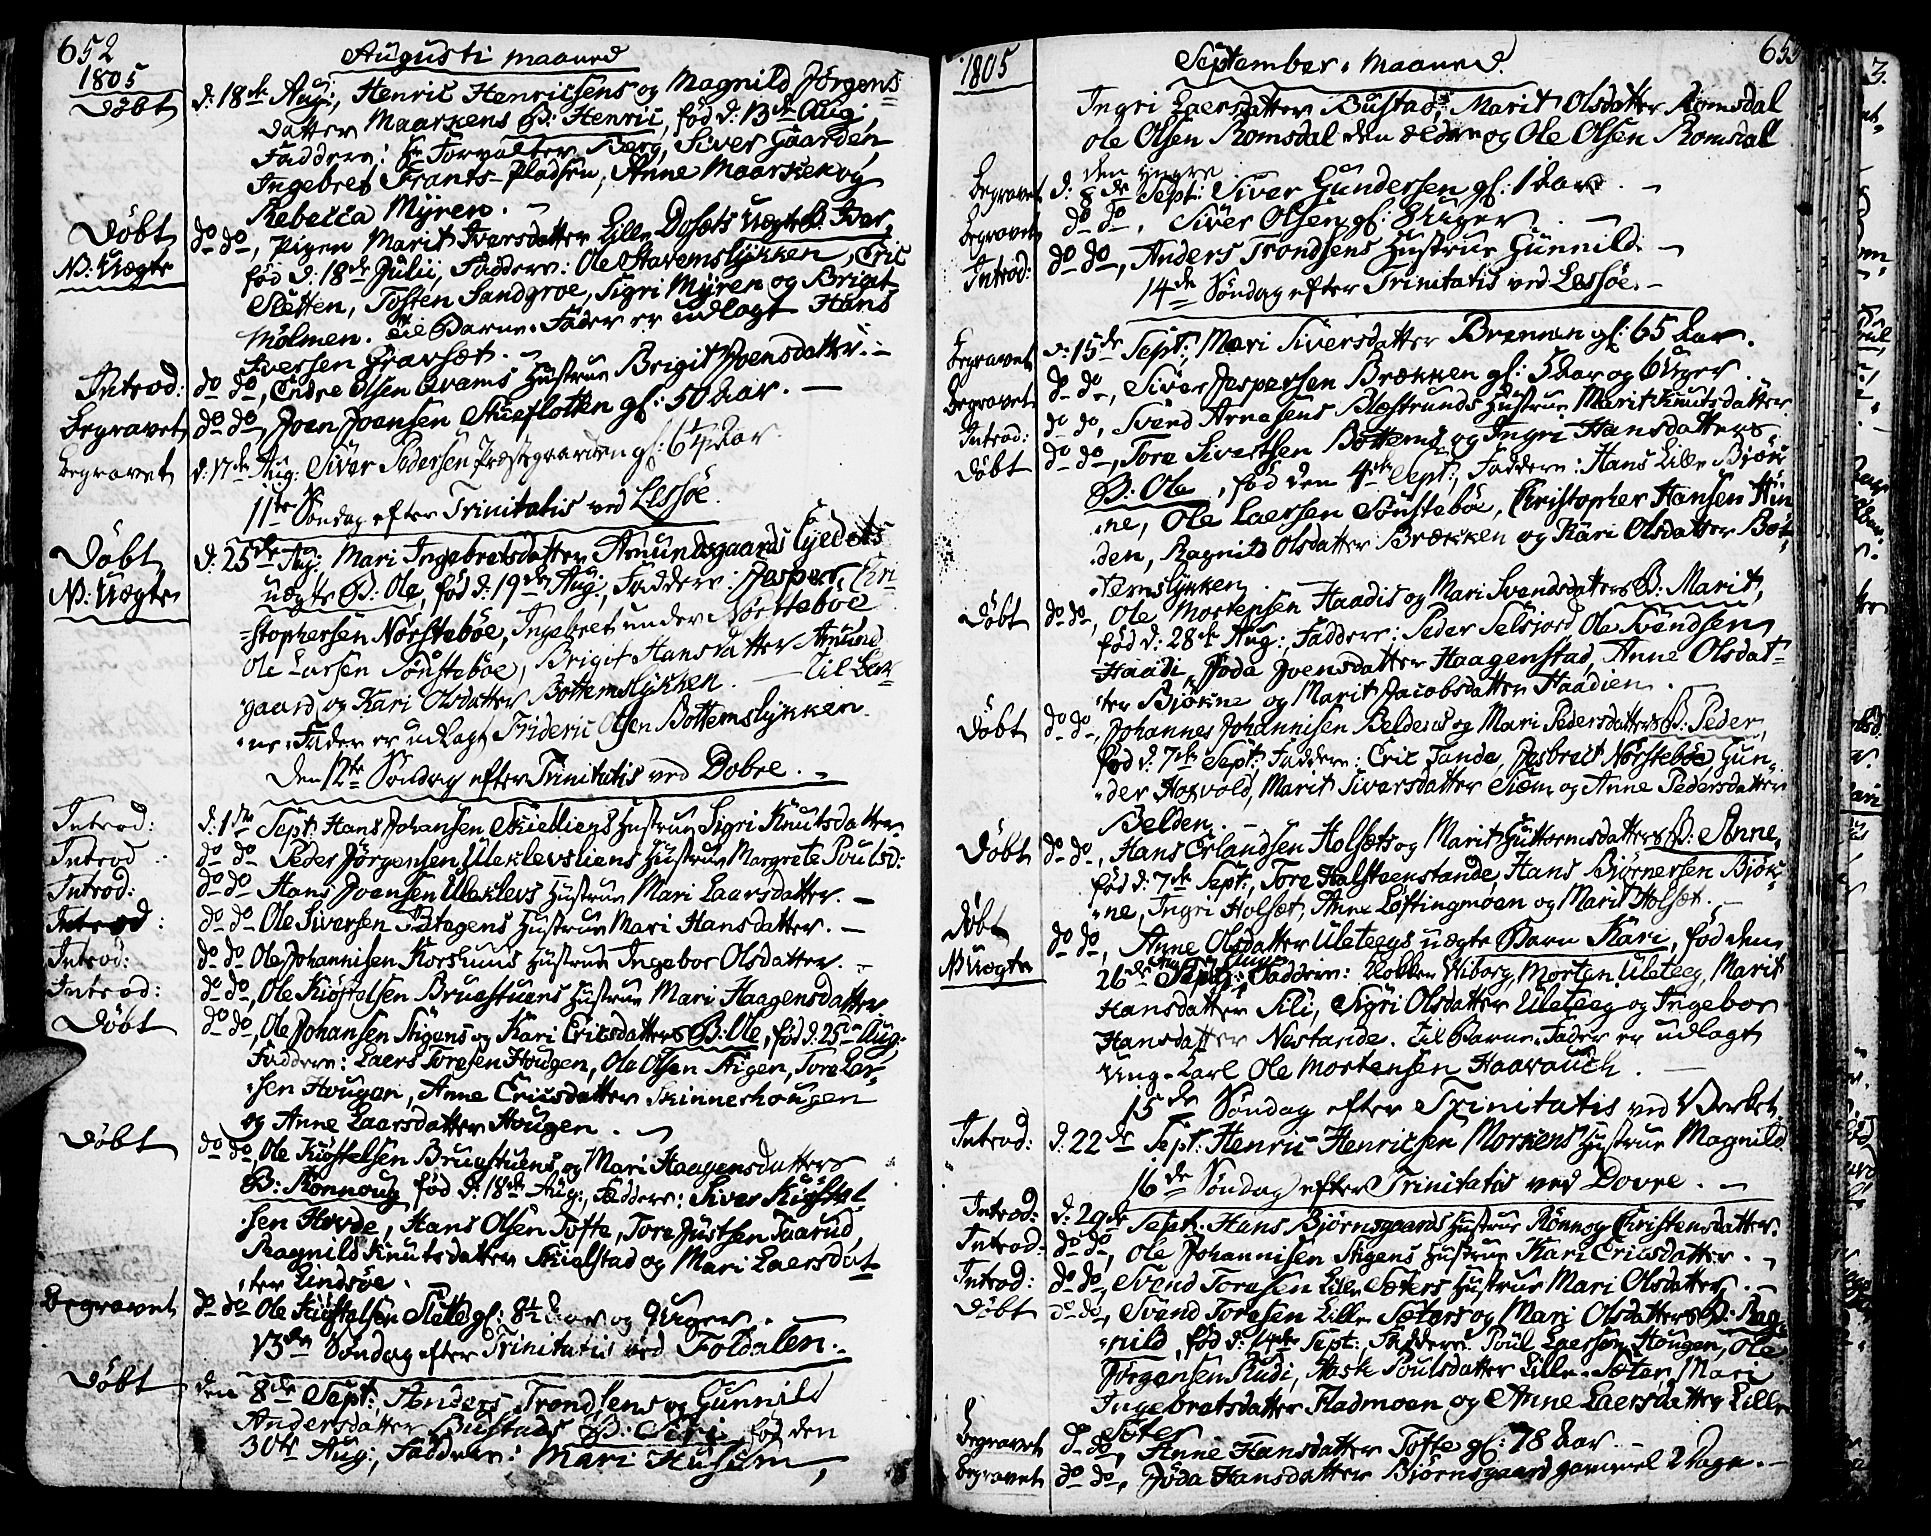 652
Augusti Maaned
1805
Døbt d: 18de Aug:, Henric Henricsens og Magnild Jørgens-
datter Maarkens B: Henric, fød d: 13de Aug:,
Faddere: Hr Forvalter Berg, Siver Gaarden,
Ingebret Frants-Pladsen, Anne Maarken og
Rebecca Myren.
Døbt do do, Pigen Marit Iversdatter Lille Dosæts Uægte B: Iver,
N: Uægte fød d: 18de Julii, Faddere: Ole Stavemslykken, Eric
Sletten, Tosten Sandgroe, Sigri Myren og Brigit
Molmen. Til Barne-Fader er udlagt Hans
Iversen Gravsæt.
Introd: do do, Endre Olsen Qvams Hustrue Brigit Joensdatter.
Begravet do do, Joen Joensen Stueflotten gl: 50 Aar.
Begravet d: 17de Aug: Siver Pedersen Præstegaarden gl: 64 Aar.
11te Søndag efter Trinitatis ved Lessøe.
Døbt d: 25de Aug: Mari Ingebretsdatter Amundsgaards Ejedets
N: Uægte uægte B: Ole, fød d: 19de Aug:, Faddere: Jesper Chri-
stophersen Nørstebøe, Ingebret under Nørstebøe
Ole Larsen Sønstebøe, Brigit Hansdatter Amund
gaard og Kari Olsdatter Bottemslykken. Til Bar-
ne-Fader er udlagt Frideric Olsen Bottemslykken.
Den 12te Søndag efter Trinitatis ved Dovre.
Introd: d: 1ste Sept: Hans Johansen Skiedliens Hustrue Sigri Knutsdatter
Introd: do do Peder Jørgensen Uleklevsliens Hustrue Margrete Poulsd:
Introd: do do Hans Joensen Uleklevs Hustrue Mari Laarsdatter.
Introd: do do Ole Siversen Patagens Hustrue Mari Hansdatter.
Introd: do do Ole Johannisen Korsmus Hustrue Ingebor Olsdatter.
Introd: do do, Ole Kiøstelsen Bruestuens Hustrue Mari Haagensdatter
Døbt do do, Ole Johansen Stigens og Kari Ericsdatters B: Ole, fød d: 25de Aug:
Faddere: Laers Toresen Hougen, Ole Olsen Stigen, Tore Lar-
sen Hougen, Anne Ericsdatter Skinneshougen
og Anne Laarsdatter Hougen.
Døbt do do Ole Kiøstelsen Bruestuens og Mari Haagensdatters
B: Rønnoug fød d: 18de Aug:, Faddere: Siver Kiøstel-
sen Hovde, Hans Olsen Tofte, Tore Justsen Taarud,
Ragnild Knutsdatter Skielstad og Mari Laersdat-
ter Lindsøe.
Begravet do do Ole Kiøstelsen Slette gl: 8½ Aar og 9 Uger.
13de Søndag efter Trinitatis ved Foldalen.
Døbt den 8de Sept: Anders Trondsens og Gunnild
Andersdatter Bustads B: Siri, fød den
30te Aug:, Faddere: Mari Husum,
1805
September Maaned.
653
Ingri Laersdatter Bustad, Marit Olsdatter Romsdal
Ole Olsen Romsdal den ældre og Ole Olsen Romsdal
den yngre.
Begravet d: 8de Sept: Siver Gundersen gl: 1 Aar.
Begravet do do, Siver Olsen gl: 3 Uger.
Introd: do do, Anders Trondsens Hustrue Gunnild.
14de Søndag efter Trinitatis ved Lessøe.
Begravet d: 15de Sept: Mari Siversdatter Brennen gl: 65 Aar.
Begravet do do, Siver Jespersen Brækken gl: 5 Aar og 6 Uger.
Introd: do do, Svend Arnesens Blæstrunds Hustrue Marit Knutsdatter
Døbt do do, Tore Sivertsen Bottems og Ingri Hansdatters
B: Ole, fød den 4de Sept:, Faddere: Hans Lille Biøk-
ne, Ole Laersen Sønstebøe, Christopher Hansen Hun
den, Ragnild Olsdatter Brækken og Kari Olsdatter Bot-
temslykken.
Døbt do do, Ole Mortensen Haadis og Mari Svendsdatters B: Marit,
fød d: 28de Aug:, Faddere: Peder Selsjord, Ole Svendsen
Haadi, Joda Joensdatter Haagenstad, Anne Olsdat-
ter Biøkne og Marit Jacobsdatter Haadien.
Døbt do do, Johannes Johannisen Beldens og Mari Pedersdatters B: Peder,
fød d: 7de Sept: Faddere: Eric Tande, Jesbret Nørstebøe, Gun-
der Hosvold, Marit Siversdatter Siem og Anne Pedersdatter
Belden.
Døbt do do, Hans Erlandsen Holsæts og Marit Guttormsdatters B: Anne,
fød d: 7de Sept:, Tore Halsteenstande, Hans Biørnersen Biøk-
ne, Ingri Holsæt, Anne Løftingmoen og Marit Holsæt.
Døbt do do, Anne Olsdatter Uleteegs uægte Barn Kari, fød den
N: Uægte 26de Faddere: Klokker Wiborg, Morten Uleteeg, Marit
Hansdatter Sili, Sigri Olsdatter Uleteeg og Ingebor
Hansdatter Nestande. Til Barne-Fader er udlagt
Ung-Karl Ole Mortensen Haavauch.
15de Søndag efter Trinitatis ved Verket.
Introd: d: 22de Sept: Henric Henricsen Morkens Hustrue Magnild.
16de Søndag efter Trinitatis ved Dovre.
Introd: d: 29de Sept: Hans Biørnsgaards Hustrue Rønnog Christensdatter.
Introd: do do, Ole Johannisen Stigens Hustrue Kari Ericsdatter.
Introd: do do, Svend Toresen Lille Sæters Hustrue Mari Olsdatter.
Døbt do do, Svend Toresen Lille Sæters og Mari Olsdatters B: Rag-
nild, fød d: 14de Sept:, Faddere: Poul Laersen Hougen, Ole
Jørgensen Rudi, Ask Poulsdatter Lille-Sæter, Mari
Ingebretsdatter Fladmoen og Anne Laersdatter Lille
Sæter
Begravet do do, Anne Hansdatter Tofte gl: 78 Aar.
Begravet do do, Joda Hansdatter Biørnsgaard gammel 2 Dage.